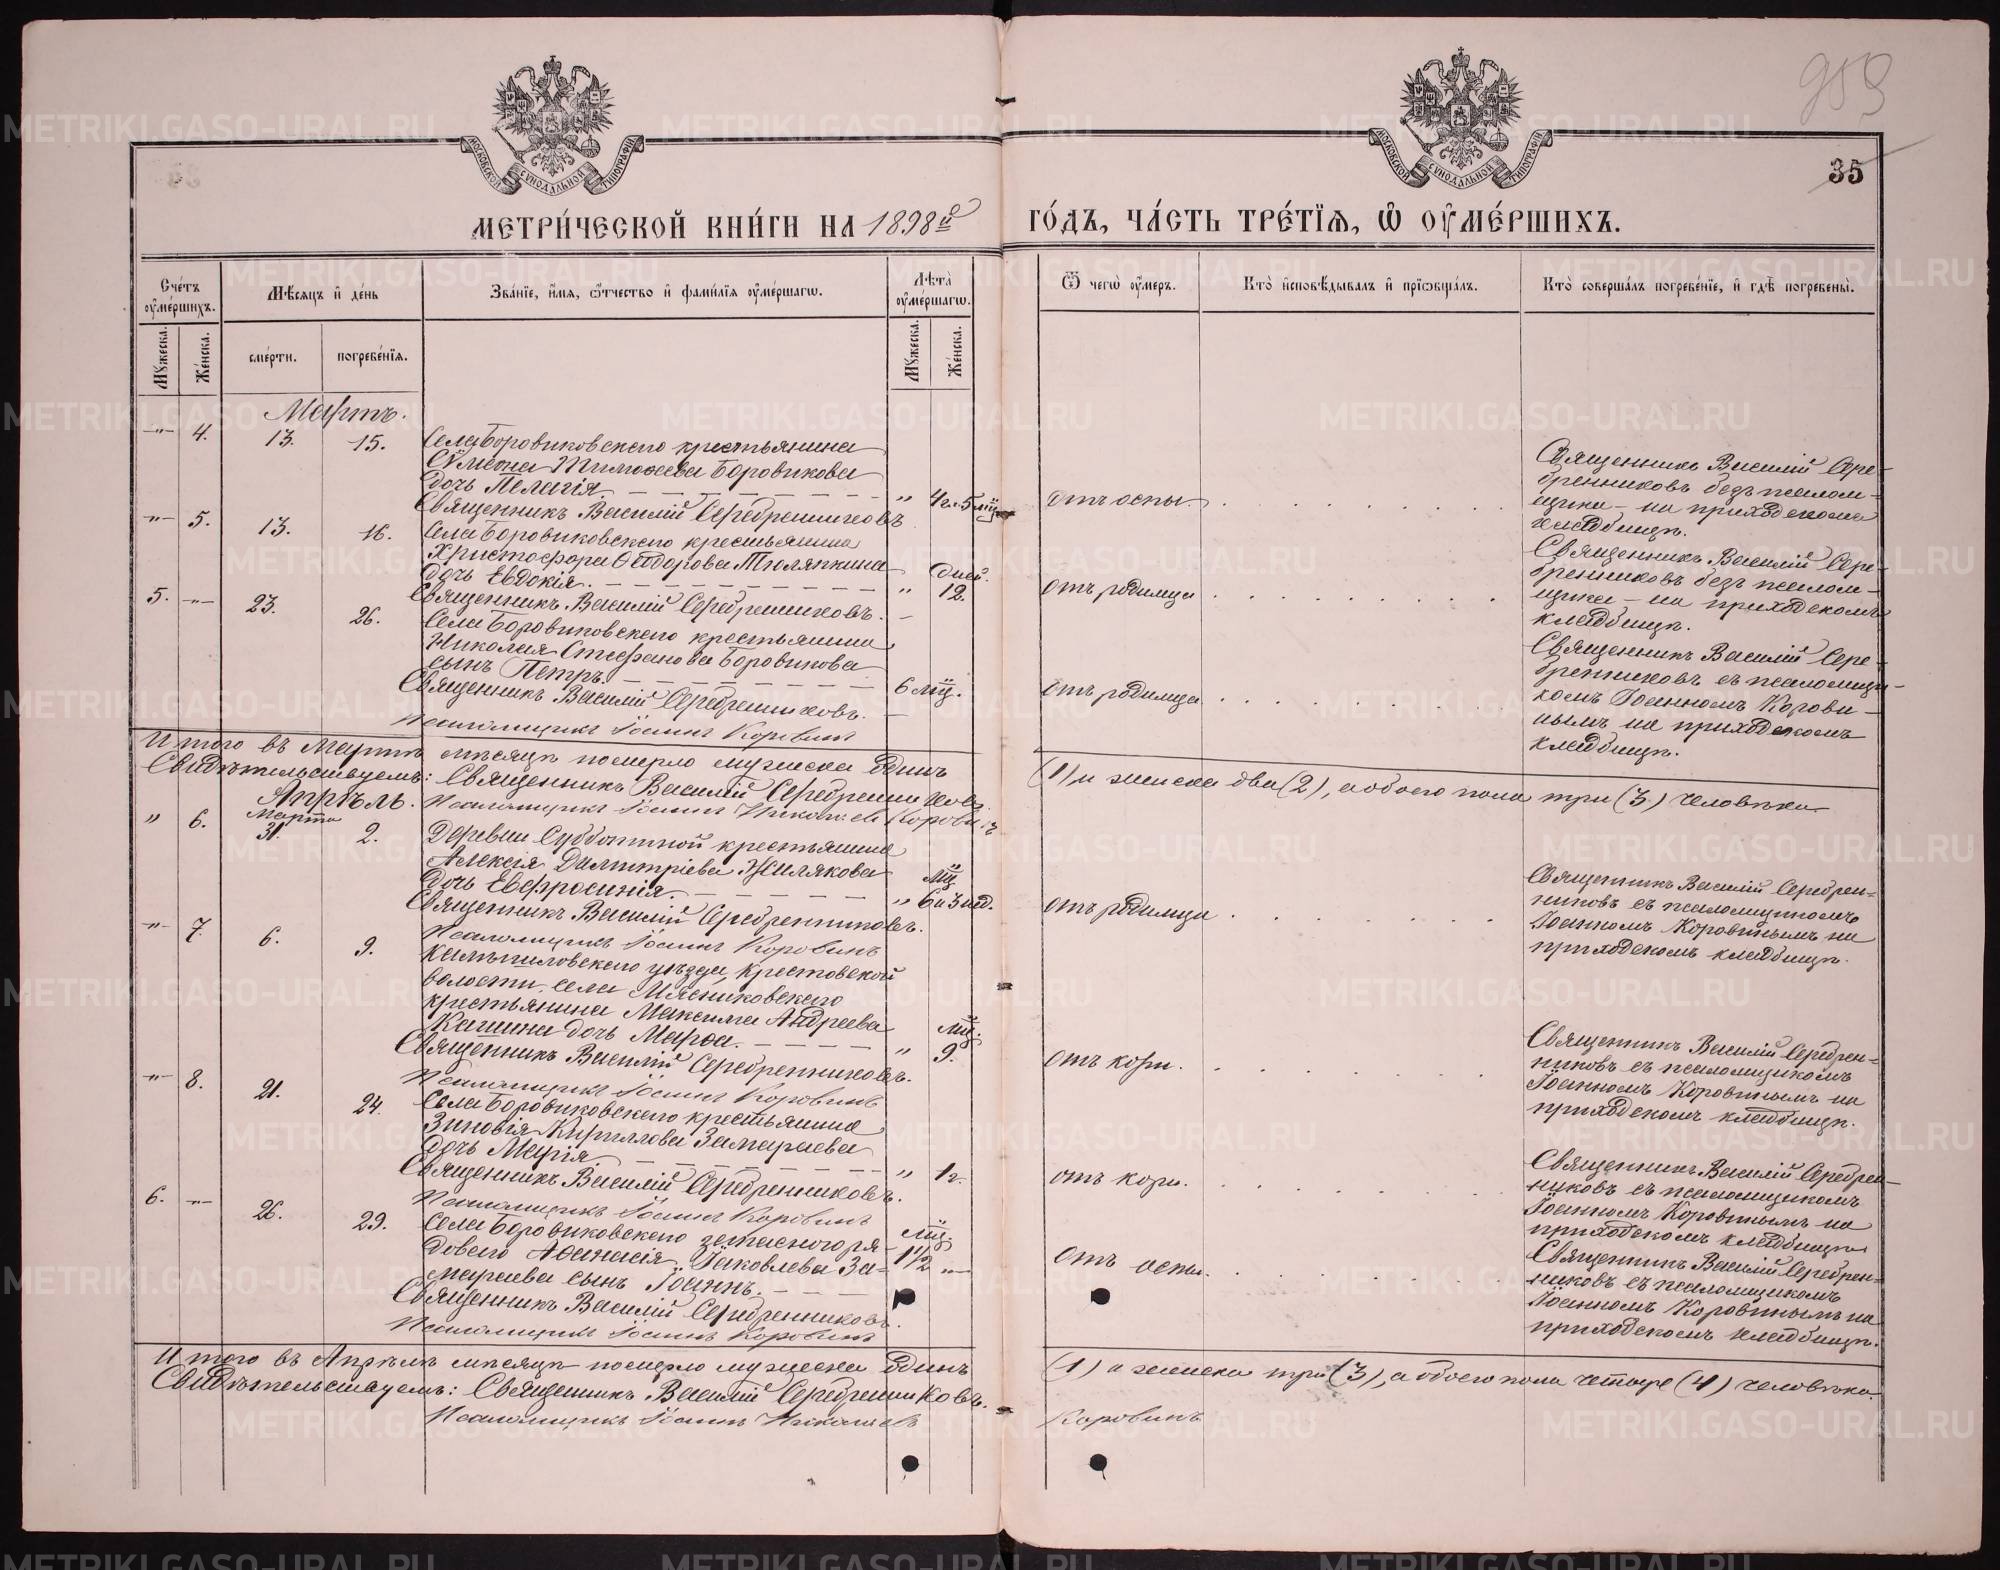 959
35
МОСКОВСКОЙ СѴНОДАЛЬНОЙ ТИПОГРАФІИ
МОСКОВСКОЙ СѴНОДАЛЬНОЙ ТИПОГРАФІИ
МЕТРИ́ЧЕСКОЙ КНИ́ГИ НА 1898й ГО́ДЪ, ЧА́СТЬ ТРЕ́ТІЯ, Ѡ ОУМЕ́РШИХЪ.
Сче́тъ оумершихъ.
Мѣсяцъ и де́нь
Зва́ніе, и́мя, ѻтчество и фами́лія оуме́ршагѡ.
Лѣта̀ оуме́ршагѡ.
Ѿ чегѡ̀ оу́меръ.
Кто̀ и҆сповѣ́дывалъ и҆ прїѡбща́лъ.
Кто̀ соверша́лъ погребе́нїе, и҆ гдѣ̀ погребены̀.
Мꙋжеска.
Же́нска.
сме́рти.
погребе́нїя.
Мꙋжеска.
Же́нска.
Мартъ.
-"- 4. 13. 15. Села Боровиковскаго крестьянина
Сѷмеона Тимоѳеева Боровикова
дочь Пелагія. " 4 г. 5 мц. отъ оспы.
Священникъ Василій Серебренниковъ
Священникъ Василій Сере-
бренниковъ безъ псалом-
щика - на приходскомъ
кладбищѣ.
-"- 5. 13. 16. Села Боровиковскаго крестьянина
Христофора Ѳеодорова Тюляпкина
дочь Евдокія. " дней. 12. отъ родимца
Священникъ Василій Серебренниковъ.
Священникъ Василій Сере-
бренниковъ безъ псалом-
щика - на приходскомъ
кладбищѣ.
5. -"- 23. 26. Села Боровиковскаго крестьянина
Николая Стефанова Боровикова
сынъ Петръ. 6 мц. отъ родимца
Священникъ Василій Серебренниковъ.
Псаломщикъ Іоаннъ Коровинъ
Священникъ Василій Сере-
бренниковъ съ псаломщи-
комъ Іоанномъ Корови-
нымъ на приходскомъ
кладбищѣ.
Итого въ Мартѣ мѣсяцѣ померло мужеска одинъ (1) и женска два (2), а обоего пола три (3) человѣка.
Свидѣтельствуемъ: Священникъ Василій Серебренниковъ.
Псаломщикъ Іоаннъ Николаевъ Коровинъ
Апрѣль.
" 6. Марта 31. 2. Деревни Субботиной крестьянина
Алексія Димитріева Жилякова
дочь Евфросинія. " мц 6 и 3 нед. отъ родимца
Священникъ Василій Серебренниковъ.
Псаломщикъ Іоаннъ Коровинъ
Священникъ Василій Серебрен-
никовъ съ псаломщикомъ
Іоанномъ Коровинымъ на
приходскомъ кладбищѣ.
-"- 7. 6. 9. Камышловскаго уѣзда, Крестовской
волости, села Мясниковскаго
крестьянина Максима Андреева
Кашина дочь Марѳа. " мц. 9. отъ кори.
Священникъ Василій Серебренниковъ.
Псаломщикъ Іоаннъ Коровинъ
Священникъ Василій Серебрен-
никовъ съ псаломщикомъ
Іоанномъ Коровинымъ на
приходскомъ кладбищѣ.
-"- 8. 21. 24. Села Боровиковскаго крестьянина
Зиновія Кириллова Замараева
дочь Марія " 1 г. отъ кори.
Священникъ Василій Серебренниковъ.
Псаломщикъ Іоаннъ Коровинъ
Священникъ Василій Серебрен-
никовъ съ псаломщикомъ
Іоанномъ Коровинымъ на
приходскомъ кладбищѣ
6. -"- 26. 29. Села Боровиковскаго запаснаго ря-
дового Аѳанасія Іаковлева За-
мараева сынъ Іоаннъ. мц. 1 1/2 -"- Отъ оспы.
Священникъ Василій Серебренниковъ.
Псаломщикъ Іоаннъ Коровинъ
Священникъ Василій Серебрен-
никовъ съ псаломщикомъ
Іоанномъ Коровинымъ на
приходскомъ кладбищѣ.
Итого въ Апрѣлѣ мѣсяцѣ померло мужеска одинъ (1) и женска три (3), а обоего пола четыре (4) человѣка.
Свидѣтельствуемъ: Священникъ Василій Серебренниковъ.
Псаломщикъ Іоаннъ Николаевъ Коровинъ
METRIKI.GASO-URAL.RU